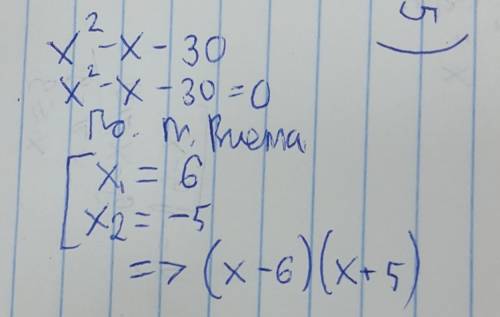 x² - x - 30
x² - x - 30 = 0
По. т. Виета
x₁ = 6
x₂ = -5
=> (x - 6)(x + 5)